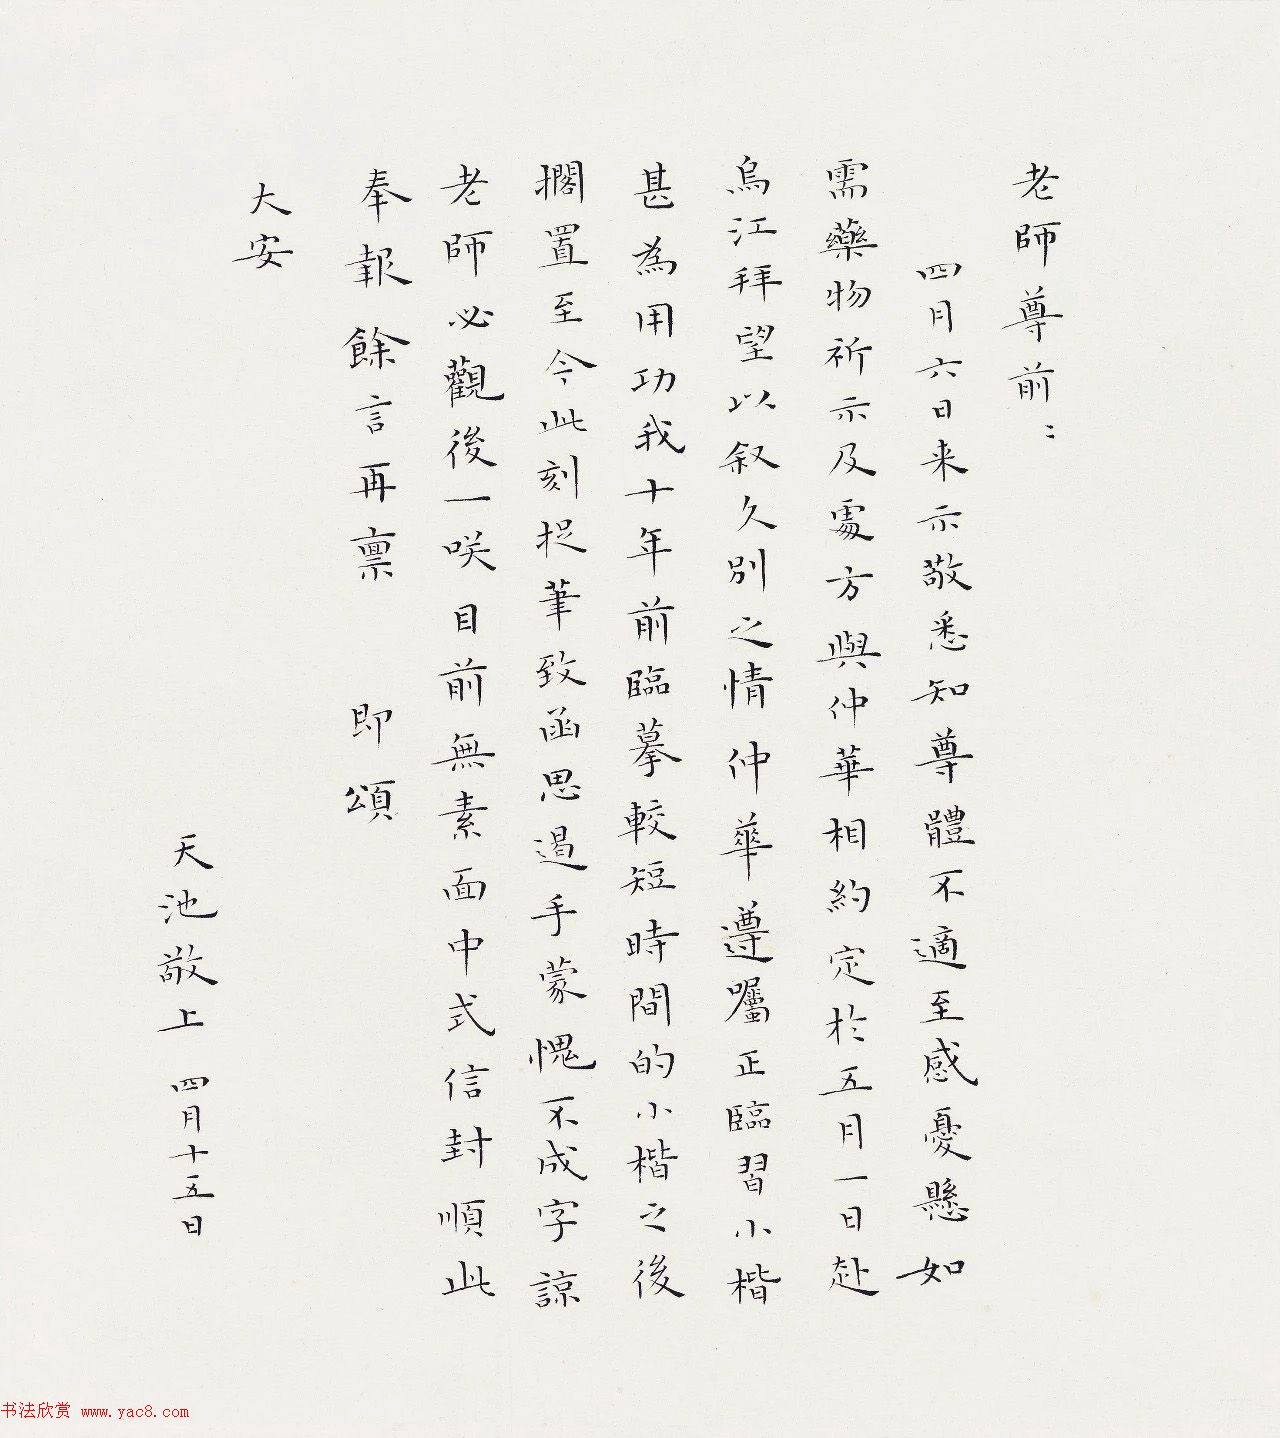 老師尊前：
四月六日来示敬悉知尊體不適至感憂懸如
需藥物祈示及處方與仲華相約定於五月一日赴
烏江拜望以叙久別之情仲華遵囑正臨習小楷
甚為用功我十年前臨摹較短時間的小楷之後
擱置至今此刻捉筆致函思遏手蒙愧不成字諒
老師必觀後一咲目前無素面中式信封順此
奉報餘言再禀 即頌
大安
天池敬上 四月十五日
书法欣赏 www.yac8.com